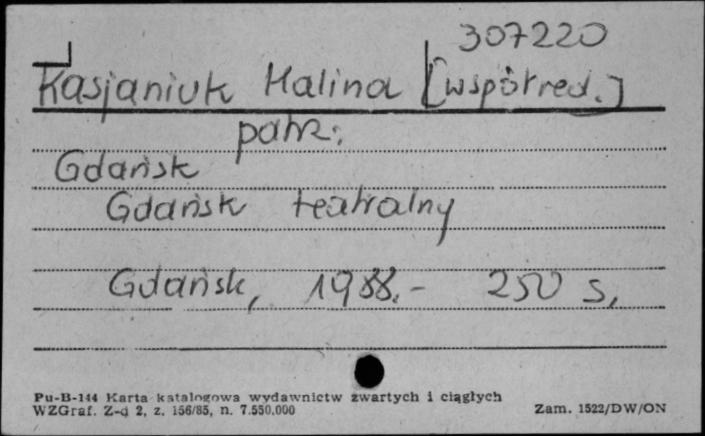 307220
Kasjaniuk Halina [współred.]
patrz:
Gdańsk
Gdańsk teatralny
Gdańsk, 1988.- 250 s.
Pu-B-144 Karta katalogowa wydawnictw zwartych i ciągłych
WZGraf. Z-d 2, z. 156/85, n. 7.550.000
Zam. 1522/DW/ON